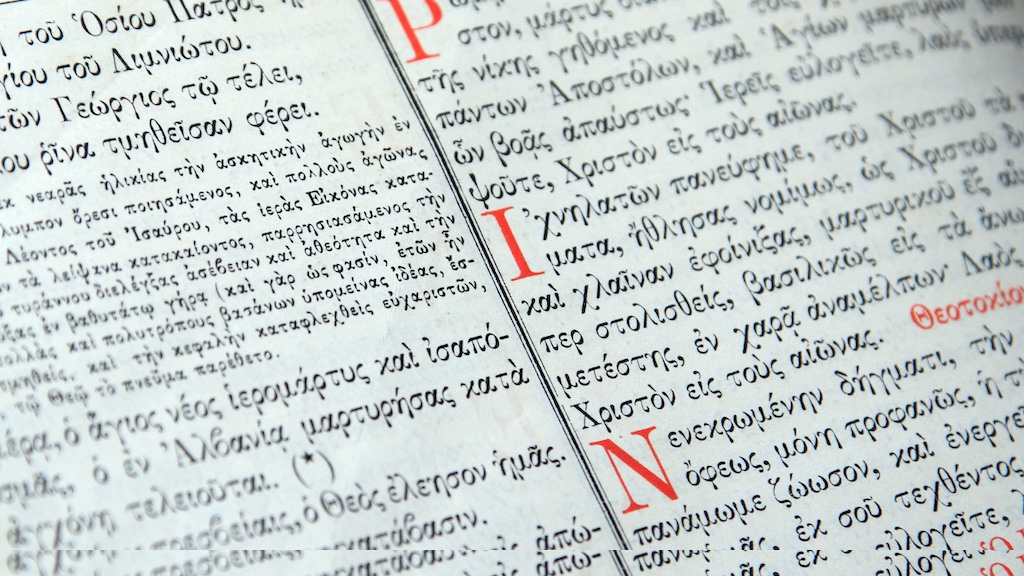 τοῦ Ὁσίου Πατρὸς
γίου τοῦ Λιμνιώτου.
τῶν Γεώργιος τῷ τέλει,
ου ῥῖνα τμηθεῖσαν φέρει.
νεαρᾶς ἡλικίας τὴν ἀσκητικὴν ἀγωγὴν ἐν
λυμπον ὄρεσι ποιησάμενος, καὶ πολλοὺς ἀγῶνας
Λέοντος τοῦ Ἰσαύρου, τὰς ἱερὰς Εἰκόνας κατα-
τὰ λείψανα κατακαίοντος, παρρησιασάμενος τὴν
τυράννου διελέγξας ἀσέβειαν καὶ ἀθεότητα καὶ τὴν
ξας ἐν βαθυτάτῳ γήρᾳ (καὶ γὰρ ὡς φασίν, ἐτῶν ἦν
ολλὰς καὶ πολυτρόπους βασάνων ὑπομείνας ἰδέας, ἐσ-
τμηθεὶς, καὶ τὴν κεφαλὴν καταφλεχθεὶς εὐχαριστῶν,
τῷ Θεῷ τὸ πνεῦμα παρέθετο.
μέρᾳ, ὁ ἅγιος νέος ἱερομάρτυς καὶ ἰσαπό-
σμᾶς, ὁ ἐν Ἀλβανίᾳ μαρτυρήσας κατὰ
ἀγχόνῃ τελειοῦται. (*)
πρεσβείαις, ὁ Θεὸς ἐλέησον ἡμᾶς.
κατάβασιν.
ἀπώ-
Ρ
στον, μάρτυς
τῆς νίκης γηθόμενος καὶ τοῖς
πάντων Ἀποστόλων, καὶ Ἁγίων μαρτύρων
ὧν βοᾷς ἀπαύστως· Ἱερεῖς εὐλογεῖτε, λαὸς ὑπερ
ψοῦτε, Χριστὸν εἰς τοὺς αἰῶνας.
Ἰχνηλατῶν πανεύφημε, τοῦ Χριστοῦ τὰ
ματα, ἤθλησας νομίμως, ὡς Χριστοῦ
καὶ χλαῖναν ἐφοίνιξας, μαρτυρικοῦ ἐξ
περ στολισθείς, βασιλικῶς εἰς τὰ ἄνω
μετέστης, ἐν χαρᾷ ἀναμέλπων· Λαὸς
Χριστὸν εἰς τοὺς αἰῶνας.
Θεοτοκίον
Νενεκρωμένην δήγματι, τὴν
ὄφεως, μόνη προφανῶς, ἡ
πανάμωμε ζώωσον, καὶ ἐνεργε
ἐκ σοῦ τεχθέντος
εὐλογεῖτε,